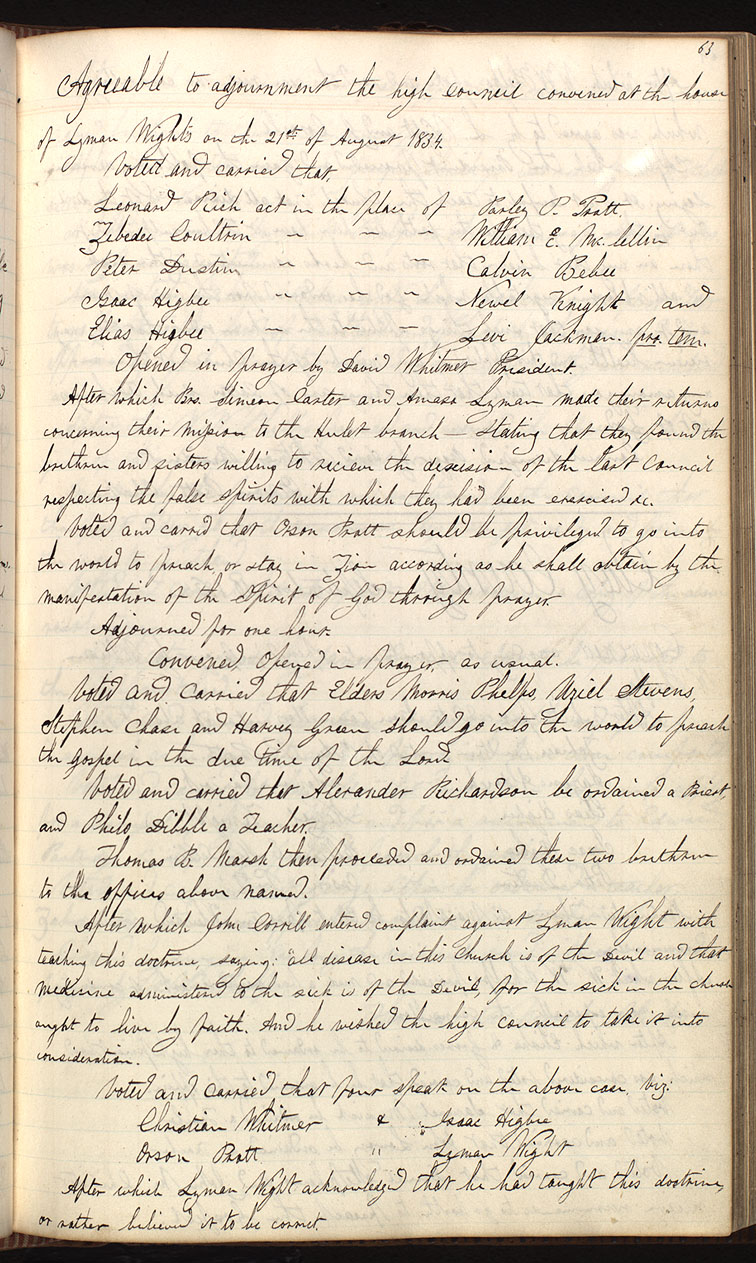 63
Agreeable to adjournment the high Council convened at the house
of Lyman Wight's on the 21st of August 1834.
Voted and carried that,
Leonard Rich act in the place of Parley P. Pratt.
Zebedee Coultrin " " " William E. Mc.lellin
Peter Dustin " " " Calvin Bebee
Isaac Higbee " " " Newel Knight and
Elias Higbee " " " Levi Jackman. pro. tem.
Opened in prayer by David Whitmer President.
After which Brs. Simeon Carter and Amasa Lyman made their returns
concerning their mission to the Hulet branch — stating that they found the
brethren and sisters willing to recieve the discision of the last Council
respecting the false spirits with which they had been exercised &c.
Voted and carred that Orson Pratt should be privileged to go into
the world to preach, or stay in Zion according as he shall obtain by the
manifestation of the Spirit of God through prayer.
Adjourned for one hour.
Convened. Opened in prayer, as usual.
Voted and carried that Elders Morris Phelps, Uziel Stevens,
Stephen Chase and Harvey Green should go into the world to preach
the gospel in the due time of the Lord.
Voted and carried that Alexander Richardson be ordained a Priest,
and Philo Dibble a Teacher.
Thomas B. Marsh then proceeded and ordained these two brethren
to the offices above named.
After which John Corrill entered complaint against Lyman Wight with
teaching this doctrine, saying: "all disease in this church is of the Devil and that
medicine administered to the sick is of the Devil, for the sick in the church
ought to live by faith. And he wished the high council to take it into
consideration.
Voted and carried that four speak on the above case, viz:
Christian Whitmer & Isaac Higbee
Orson Pratt " Lyman Wight
After which Lyman Wight acknowledged that he had taught this doctrine,
or rather believed it to be correct.